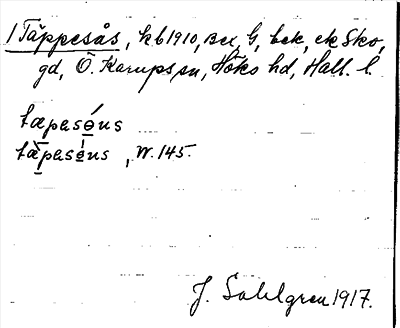 1 Täppesås, kb1910, Bex, G, bek, ek Sko,
gd, Ö. Karups sn, Höks hd, Hall. l.
tæpəsǿus
tæ̀pəsǿus, W. 145.
J. Sahlgren 1917.